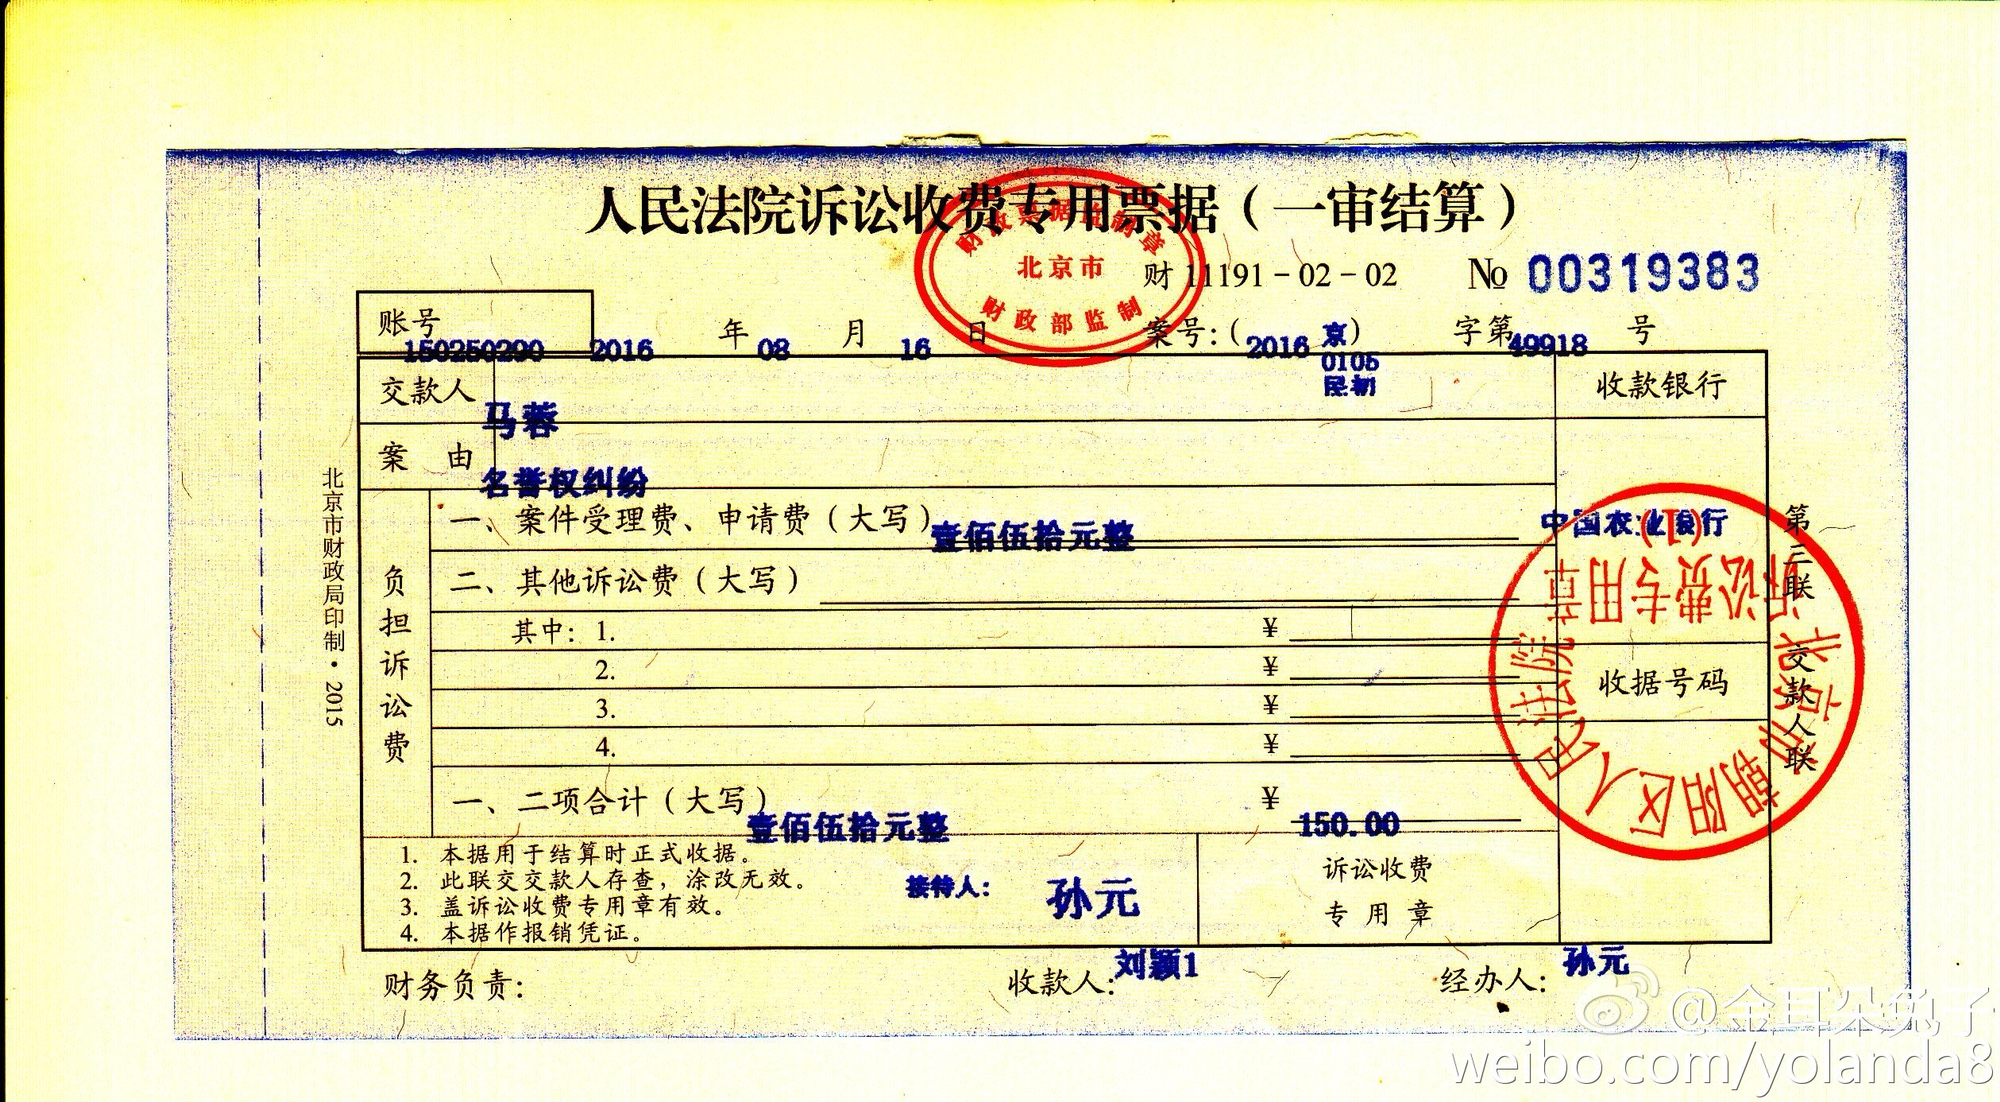 人民法院诉讼收费专用票据（一审结算）
财政票据监制章
北京市
财政部监制
财 11191－02－02 № 00319383
账号 150250290 2016 年 08 月 16 日 案号:（2016 京 0105 民初）字第 49918 号
交款人 马蓉 收款银行
案 由 名誉权纠纷
负担诉讼费
一、案件受理费、申请费（大写）壹佰伍拾元整 中国农业银行
二、其他诉讼费（大写）
其中: 1. ¥
2. ¥
收据号码
3. ¥
4. ¥
一、二项合计（大写）壹佰伍拾元整 ¥ 150.00
1. 本据用于结算时正式收据。
2. 此联交交款人存查，涂改无效。
3. 盖诉讼收费专用章有效。
4. 本据作报销凭证。
接待人: 孙元
诉讼收费
专用章
财务负责: 收款人: 刘颖1 经办人: 孙元
北京市财政局印制·2015
第三联 交款人联
北京市朝阳区人民法院
诉讼费专用章
(1)
@金耳朵兔子
weibo.com/yolanda8